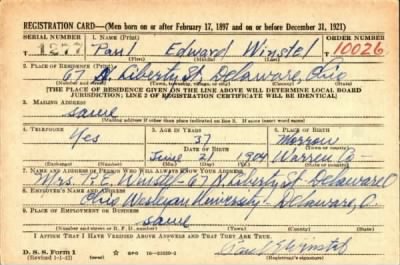 REGISTRATION CARD—(Men born on or after February 17, 1897 and on or before December 31, 1921)
SERIAL NUMBER 1. NAME (Print) ORDER NUMBER
1277 Paul Edward Winstel 10026
(First) (Middle) (Last)
2. PLACE OF RESIDENCE (Print)
67 N Liberty St. Delaware, Ohio
(Number and street) (Town) (County) (State)
[THE PLACE OF RESIDENCE GIVEN ON THE LINE ABOVE WILL DETERMINE LOCAL BOARD
JURISDICTION; LINE 2 OF REGISTRATION CERTIFICATE WILL BE IDENTICAL]
3. MAILING ADDRESS
Same
[Mailing address if other than place indicated on line 2. If same insert word same]
4. TELEPHONE 5. AGE IN YEARS 6. PLACE OF BIRTH
Yes 37 Morrow
DATE OF BIRTH (Town or county)
June 21 1904 Warren Co
(Exchange) (Number) (Mo.) (Day) (Yr.) (State or country)
7. NAME AND ADDRESS OF PERSON WHO WILL ALWAYS KNOW YOUR ADDRESS
Mrs. P. E. Winstel - 67 N. Liberty St Delaware O
8. EMPLOYER'S NAME AND ADDRESS
Ohio Wesleyan University - Delaware, O.
9. PLACE OF EMPLOYMENT OR BUSINESS
Same
(Number and street or R. F. D. number) (Town) (County) (State)
I AFFIRM THAT I HAVE VERIFIED ABOVE ANSWERS AND THAT THEY ARE TRUE.
D. S. S. Form 1
(Revised 1-1-42) (over) GPO
Paul E Winstel